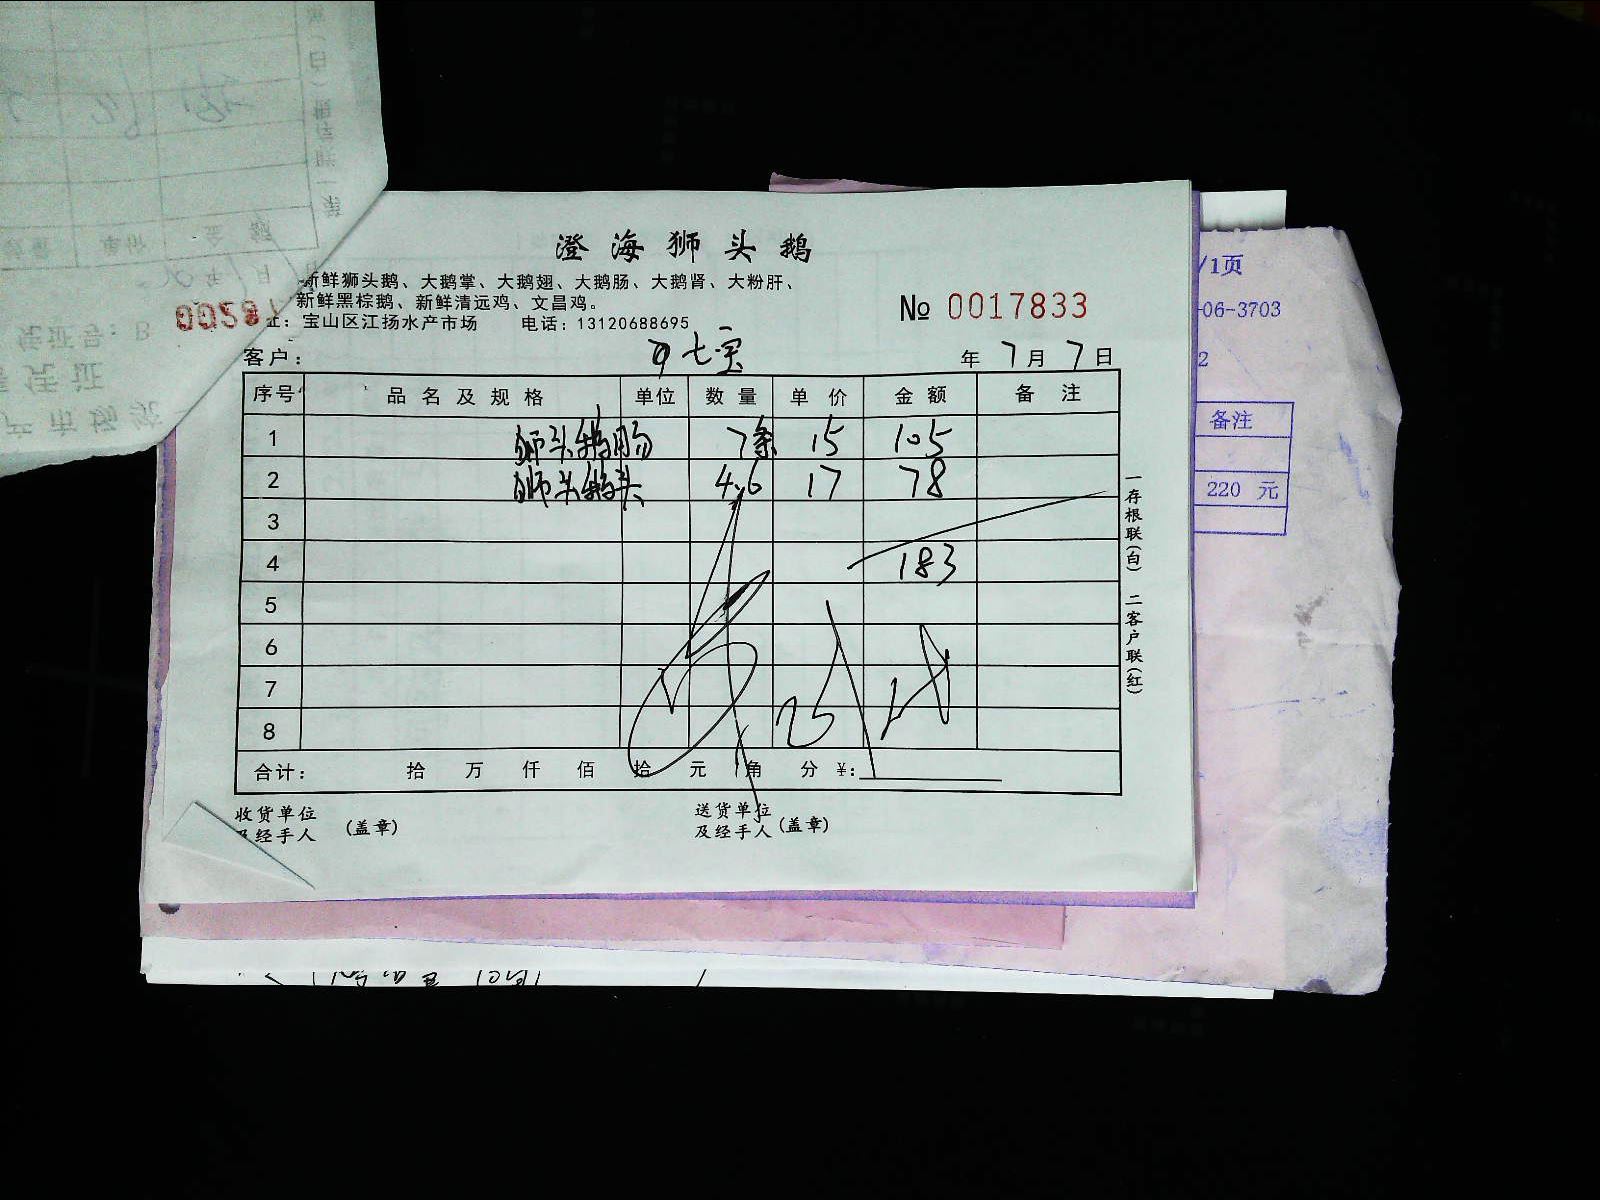 澄海狮头鹅
新鲜狮头鹅、大鹅掌、大鹅翅、大鹅肠、大鹅肾、大粉肝、
新鲜黑棕鹅、新鲜清远鸡、文昌鸡。
址：宝山区江扬水产市场 电话：13120688695
№ 0017833
客户： 七宝 年 7 月 7 日
序号 品名及规格 单位 数量 单价 金额 备注
1 狮头鹅肠 7条 15 105
2 狮头鹅头 4.6 17 78
3
4 183
5
6
7
8
合计： 拾 万 仟 佰 拾 元 角 分 ¥：
收货单位
及经手人 (盖章)
送货单位
及经手人 (盖章)
一存根联(白) 二客户联(红)
/1页
-06-3703
2
备注
220 元
00287
凭证号：B
凭证
产市场统一
金额
单价
数量
年 月